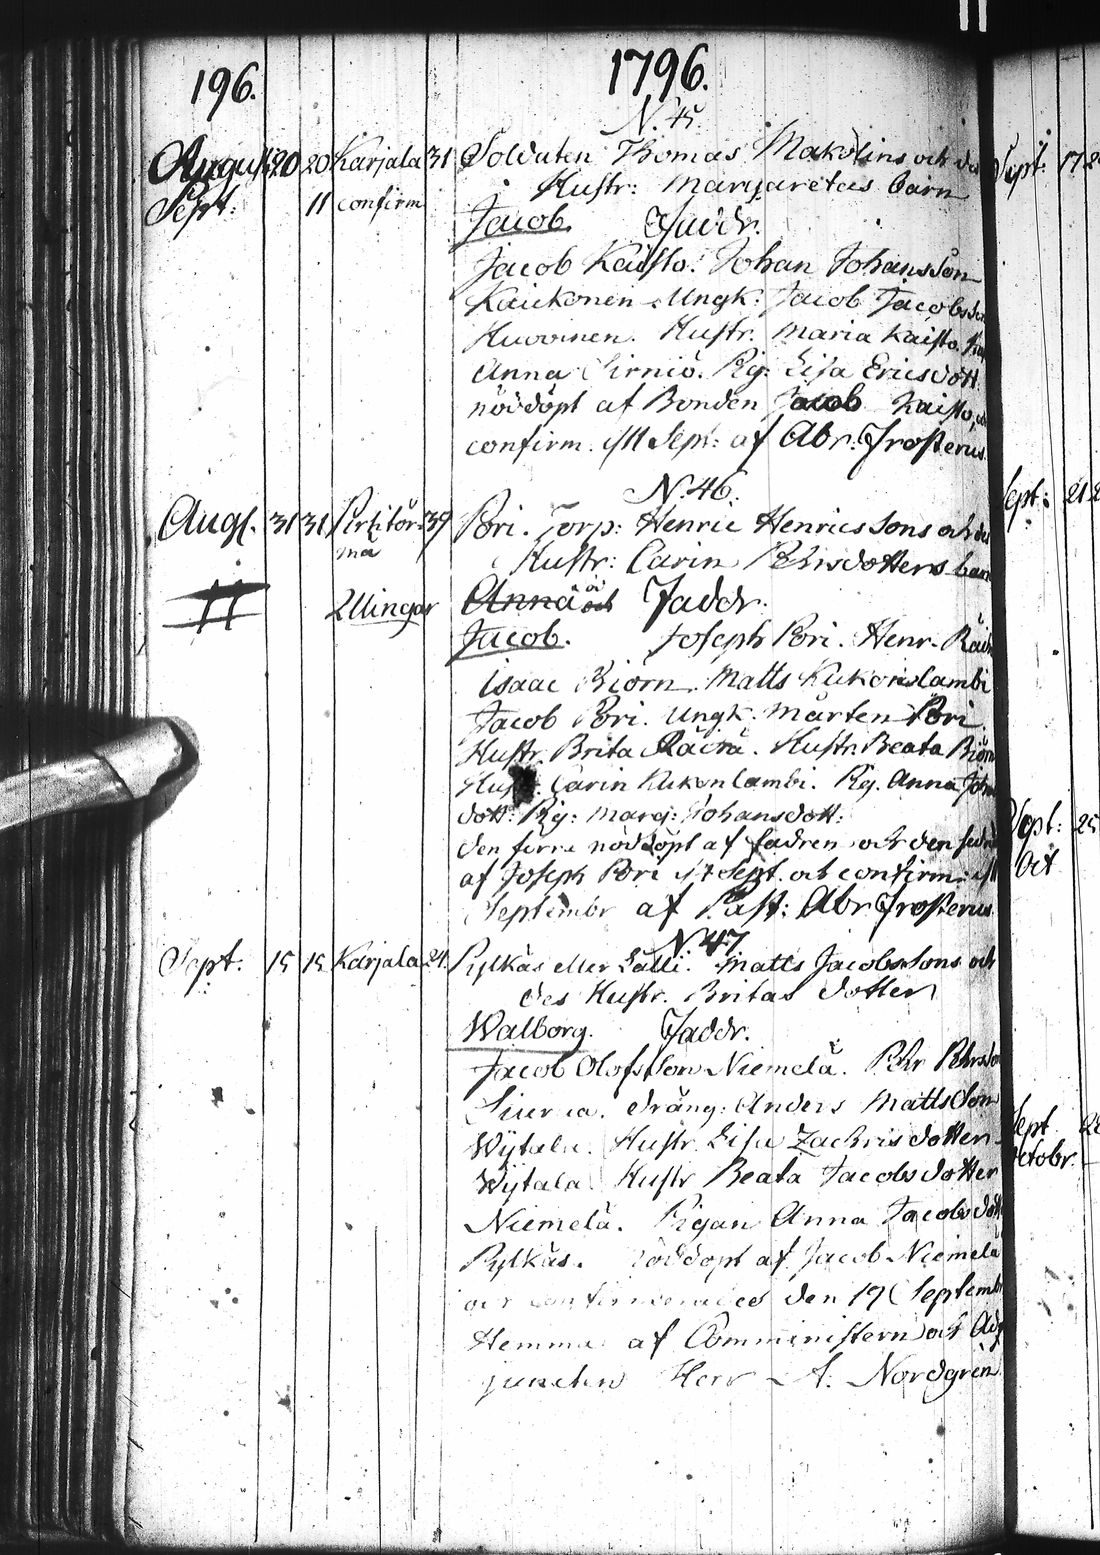 196. 1796.
N. 45
August 20 20 Karjala 31 Soldaten Thomas Makolins och
Sept: 11 confirm Hustr: Margaretas barn
Jacob. Faddr.
Jacob Kaisto. Johan Johansson
Kaickonen. Ungk: Jacob Jacobsson
Huovinen. Hustr. Maria Kaisto.
Anna Sirniö. Pig. Lisa Ericsdott.
nöddöpt af Bonden Jacob Kaisto,
confirm. 11 Sept: af Abr. Frosterus.
N. 46.
Augl. 31 31 39 Pori. Torp: Henric Henricssons och
ma Hustr: Carin Pehrsdotters barn
Anna och Faddr.
2llingar
Jacob. Joseph Pori. Henr.
Isaac Biörn. Matts Kukonlambi
Jacob Pori. Ungk. Mårten Pori.
Hustr. Brita Räinä. Hustr. Beata Biörn
Hustr. Carin Kukonlambi. Pig. Anna Joh
dott: Pig: Marg: Johansdott:
den förre nöddöpt af fadren och den
af Joseph Pori Sept. och confirm.
Septembr af Past: Abr. Frosterus.
N. 47.
Sept: 15 15 Karjala 24. Pylkäs eller Lälli. Matts Jacobssons och
des Hustr. Britas dotter
Walborg. Faddr.
Jacob Olofsson Niemelä. Pehr Pehrsson
dräng: Anders Mattsson
Wijtala. Hustr. Lisa Zachrisdotter
Wijtala. Hustr Beata Jacobsdotter
Niemelä. Pigan Anna Jacobsdott
Pylkäs. nöddöpt af Jacob Niemelä
den 19 Septemb
Hemma af Comministern och Adj
juncten Herr A. Nordgren
Sept: 17
Sept: 21
Sept: 25
Oct
Sept
Octobr.